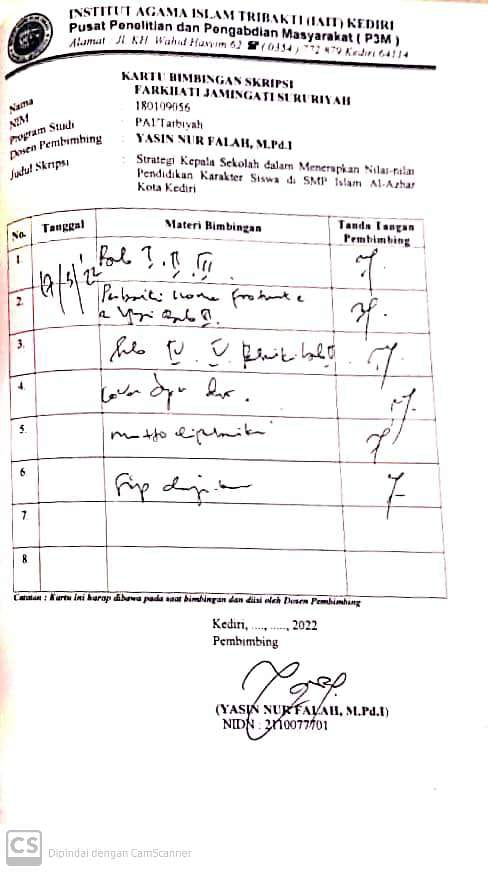 INSTITUT AGAMA ISLAM TRIBAKTI (IAIT) KEDIRI
Pusat Penelitian dan Pengabdian Masyarakat ( P3M )
Alamat Jl. KH. Wahid Hasyim 62 ☎ ( 0354 ) 772 879 Kediri 64114
KARTU BIMBINGAN SKRIPSI
Nama : FARKHATI JAMINGATI SURURIYAH
NIM : 180109056
Program Studi : PAI Tarbiyah
Dosen Pembimbing : YASIN NUR FALAH, M.Pd.I
Judul Skripsi : Strategi Kepala Sekolah dalam Menerapkan Nilai-nilai
Pendidikan Karakter Siswa di SMP Islam Al-Azhar
Kota Kediri
No. Tanggal Materi Bimbingan Tanda Tangan Pembimbing
1 Bab I, II, III.
2.
3. Bab IV. V
4.
5. motto
6
7.
8
Catatan : Kartu ini harap dibawa pada saat bimbingan dan diisi oleh Dosen Pembimbing
Kediri, ...., ....., 2022
Pembimbing
(YASIN NUR FALAH, M.Pd.I)
NIDN : 2110077701
CS Dipindai dengan CamScanner